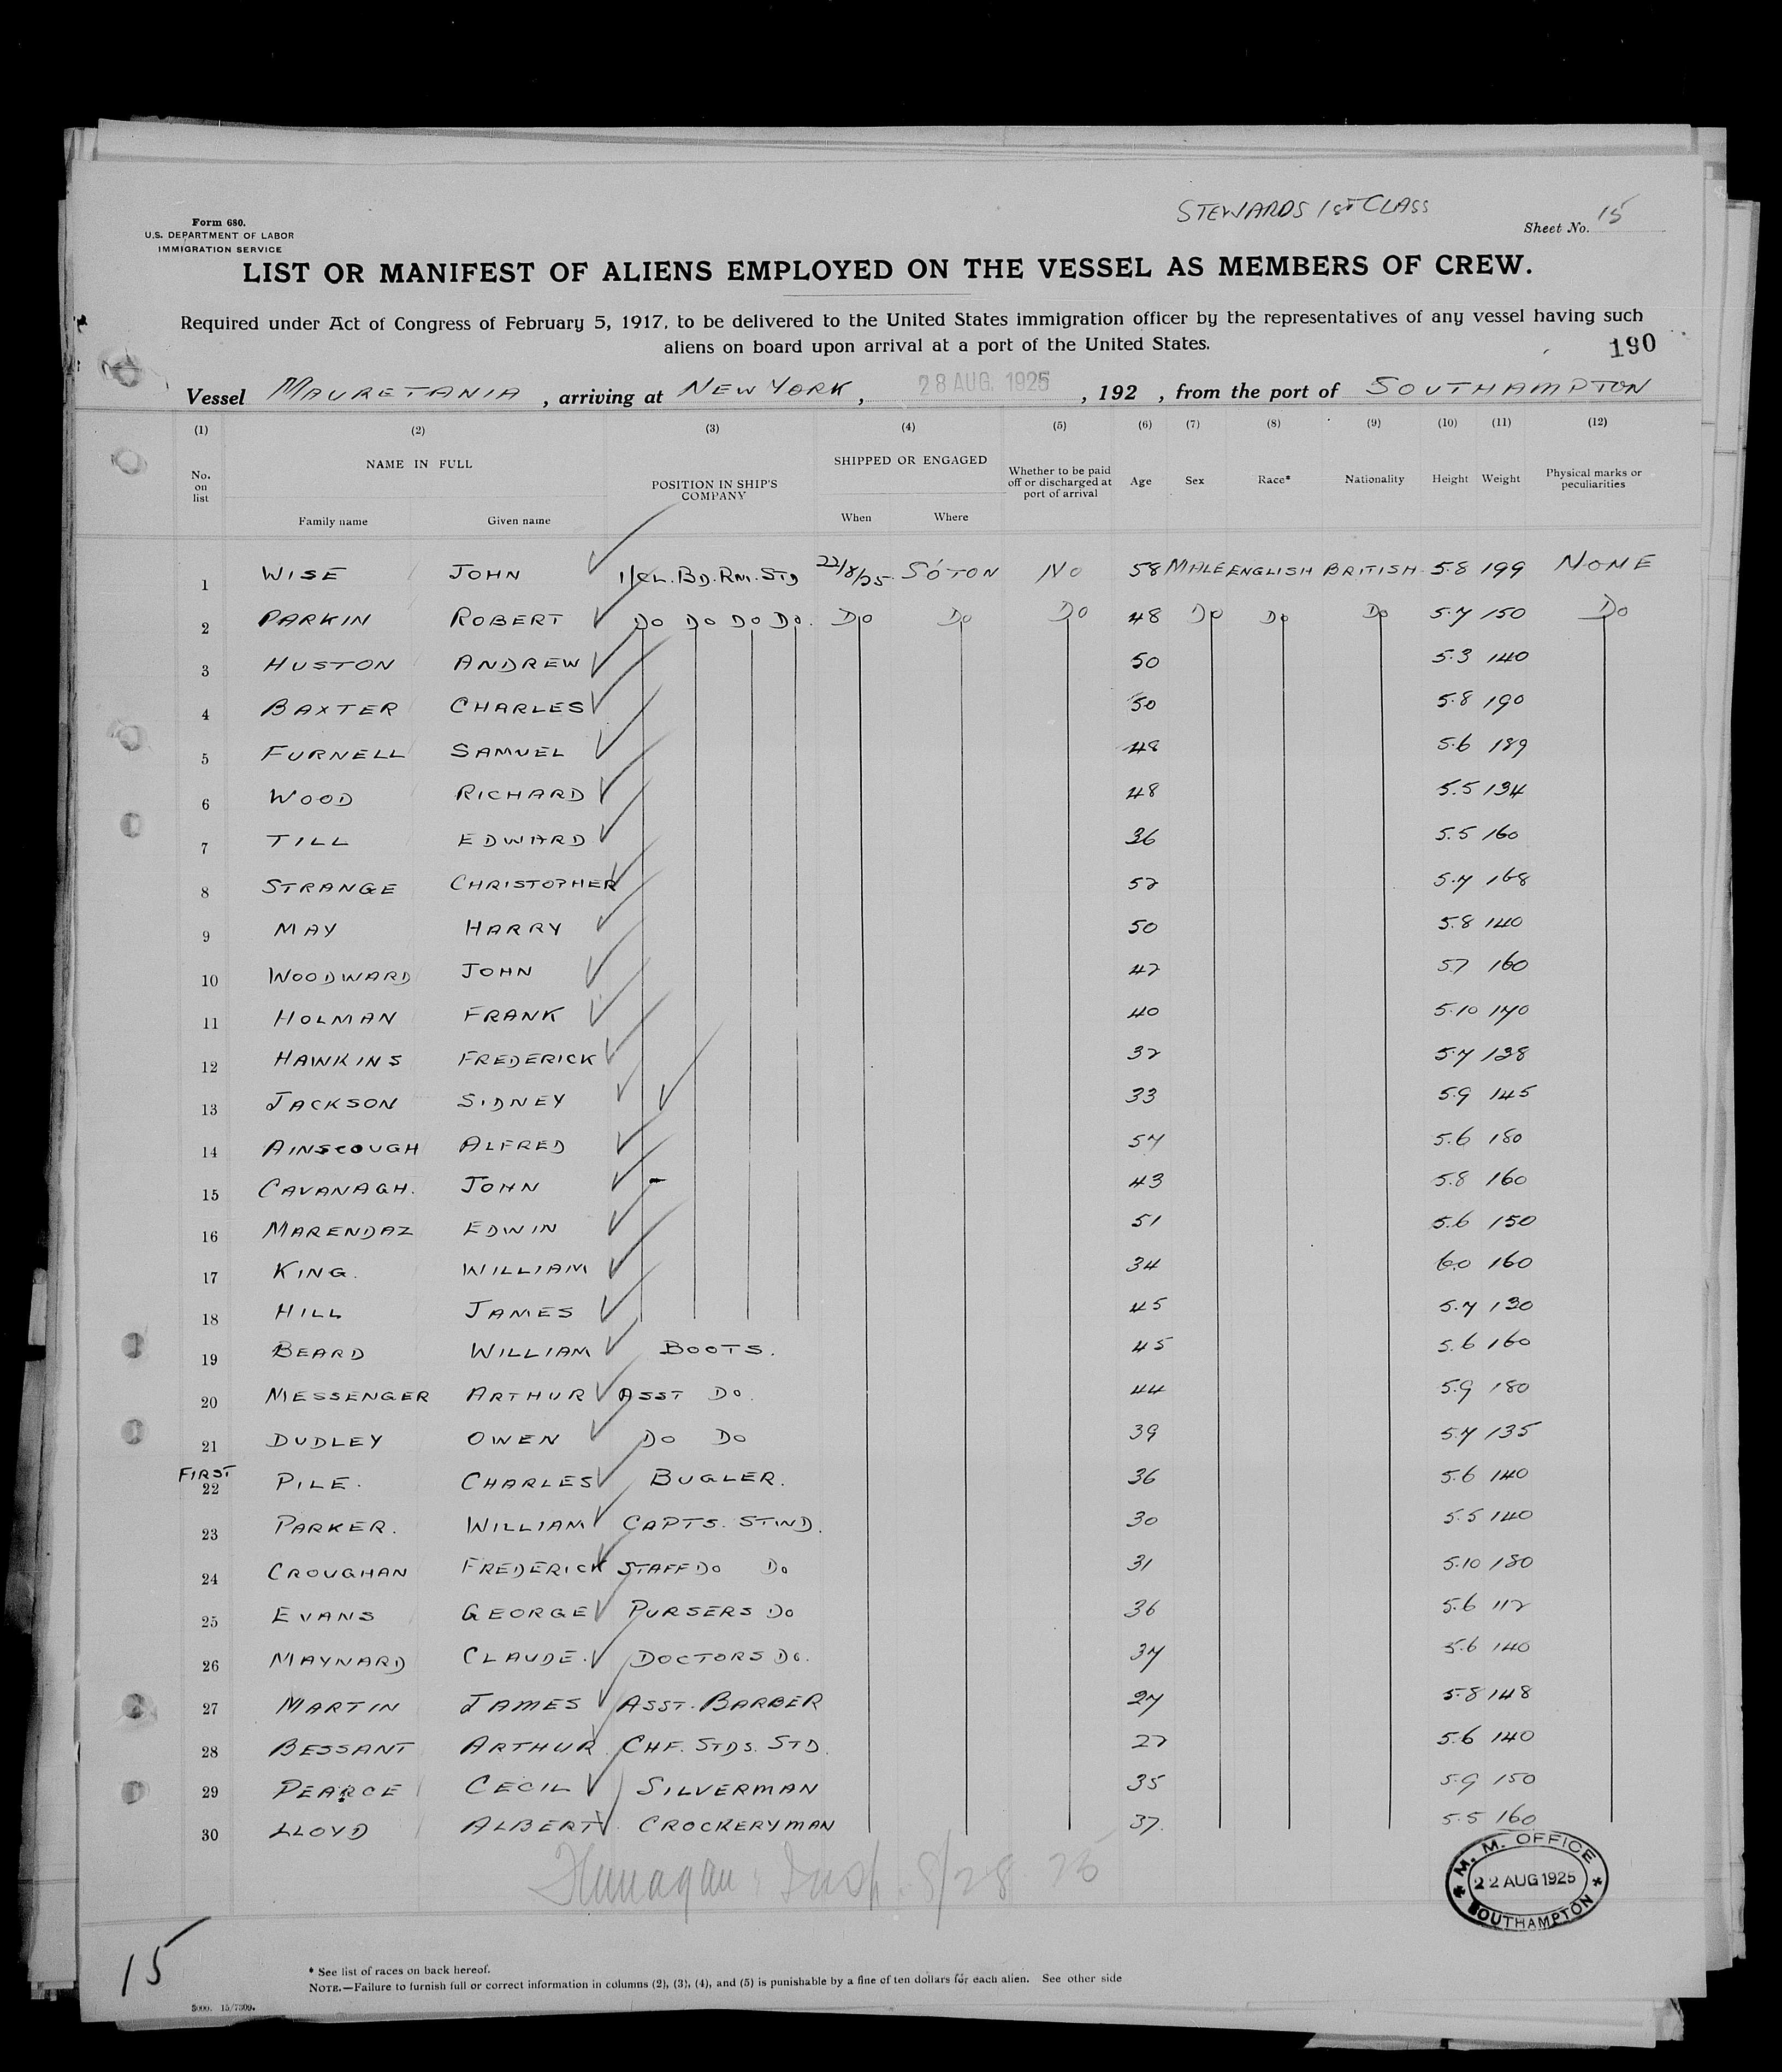 STEWARDS 1ST CLASS
Form 680.
U.S. DEPARTMENT OF LABOR
IMMIGRATION SERVICE
Sheet No. 15
LIST OR MANIFEST OF ALIENS EMPLOYED ON THE VESSEL AS MEMBERS OF CREW.
Required under Act of Congress of February 5, 1917, to be delivered to the United States immigration officer by the representatives of any vessel having such
aliens on board upon arrival at a port of the United States.
190
Vessel MAURETANIA, arriving at NEW YORK, 28 AUG. 1925, 192 , from the port of SOUTHAMPTON
(1) (2) (3) (4) (5) (6) (7) (8) (9) (10) (11) (12)
No. on list NAME IN FULL Family name Given name POSITION IN SHIP'S COMPANY SHIPPED OR ENGAGED When Where Whether to be paid off or discharged at port of arrival Age Sex Race* Nationality Height Weight Physical marks or peculiarities
1 WISE JOHN 1/CL. BD. RM. STD 22/8/25 S'OTON NO 58 MALE ENGLISH BRITISH 5.8 199 NONE
2 PARKIN ROBERT DO DO DO DO. DO DO DO 48 DO DO DO 5.7 150 DO
3 HUSTON ANDREW 50 5.3 140
4 BAXTER CHARLES 50 5.8 190
5 FURNELL SAMUEL 48 5.6 189
6 WOOD RICHARD 48 5.5 134
7 TILL EDWARD 36 5.5 160
8 STRANGE CHRISTOPHER 52 5.7 168
9 MAY HARRY 50 5.8 140
10 WOODWARD JOHN 42 5.7 160
11 HOLMAN FRANK 40 5.10 170
12 HAWKINS FREDERICK 32 5.7 138
13 JACKSON SIDNEY 33 5.9 145
14 AINSCOUGH ALFRED 57 5.6 180
15 CAVANAGH. JOHN 43 5.8 160
16 MARENDAZ EDWIN 51 5.6 150
17 KING. WILLIAM 34 6.0 160
18 HILL JAMES 45 5.7 130
19 BEARD WILLIAM BOOTS. 45 5.6 160
20 MESSENGER ARTHUR ASST DO. 44 5.9 180
21 DUDLEY OWEN DO DO 39 5.7 135
FIRST
22 PILE. CHARLES BUGLER. 36 5.6 140
23 PARKER. WILLIAM CAPTS. STWD. 30 5.5 140
24 CROUGHAN FREDERICK STAFF DO DO 31 5.10 180
25 EVANS GEORGE PURSERS DO 36 5.6 112
26 MAYNARD CLAUDE. DOCTORS DO. 37 5.6 140
27 MARTIN JAMES ASST. BARBER 27 5.8 148
28 BESSANT ARTHUR. CHF. STDS. STD. 22 5.6 140
29 PEARCE CECIL SILVERMAN 35 5.9 150
30 LLOYD ALBERT CROCKERYMAN 37. 5.5 160
Insp. 8/28 25
M. M. OFFICE
22 AUG 1925
SOUTHAMPTON
15
* See list of races on back hereof.
NOTE.—Failure to furnish full or correct information in columns (2), (3), (4), and (5) is punishable by a fine of ten dollars for each alien. See other side
5000. 15/7309.